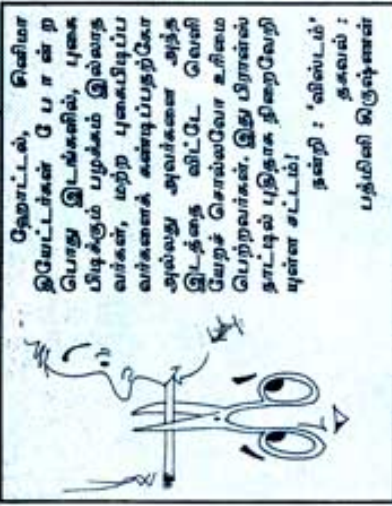 ஹோட்டல், சினிமா
தியேட்டர்கள் போன்ற
பொது இடங்களில், புகை
பிடிக்கும் பழக்கம் இல்லாத
வர்கள், மற்ற புகைபிடிப்ப
வர்களைக் கண்டிப்பதற்கோ
அல்லது அவர்களை அந்த
இடத்தை விட்டே வெளி
யேறச் சொல்லவோ உரிமை
பெற்றவர்கள். இது பிரான்ஸ்
நாட்டில் புதிதாக நிறைவேறி
யுள்ள சட்டம்!
நன்றி : 'விஸ்டம்'
தகவல் :
பத்மினி கிருஷ்ணன்